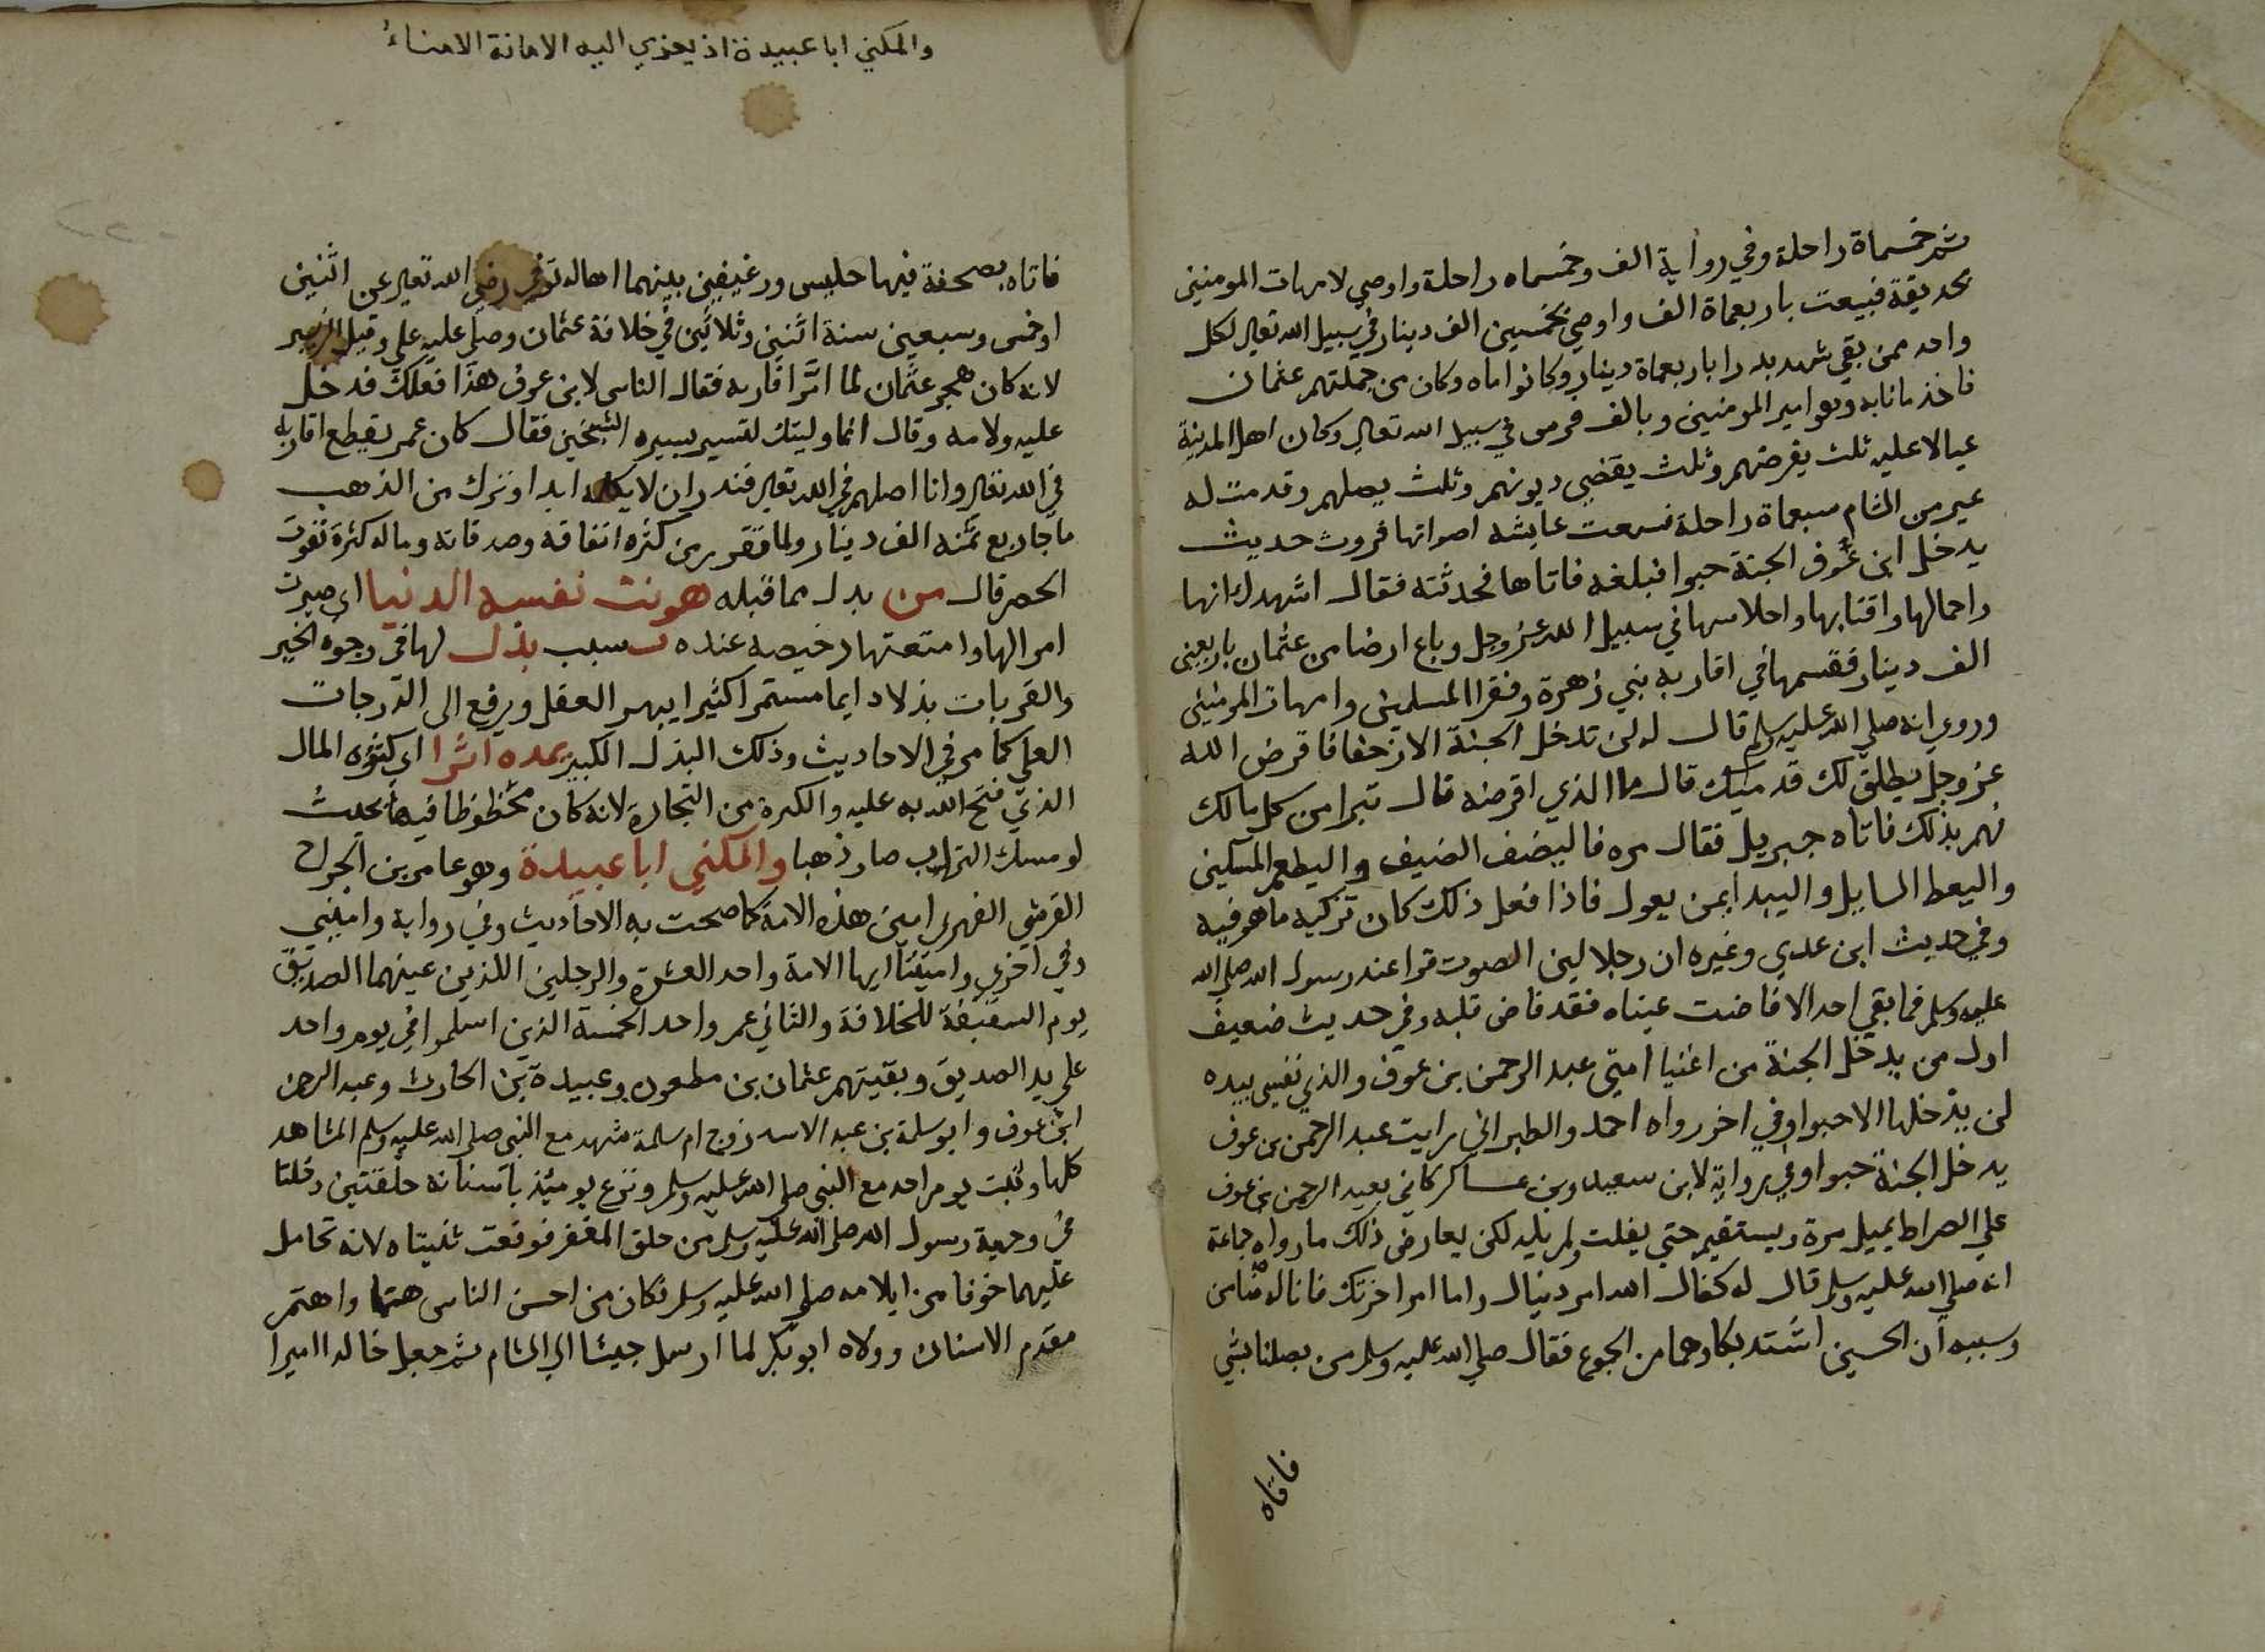 ثم خمسماة راحلة وفي رواية الف وخمسماه راحلة واوصي لامهات المومنين
بحديقة فبيعت باربعماة الف واوصي بخمسين الف دينار في سبيل الله تعالي لكل
واحد ممن بقي شهد بدرا باربعماة دينار وكانوا ماه وكان من جملتهم عثمان
فاخذ ما نابه وهو امير المومنين وبالف فرس في سبيل الله تعالي وكان اهل المدينة
عيالا عليه ثلث يقرضهم وثلث يقضي ديونهم وثلث يصلهم وقدمت له
عير من الشام سبعماة راحلة فسمعت عايشه اصواتها فروت حديث
يدخل ابن عوف الجنة حبوا فبلغه فاتاها فحدثته فقال اشهدك انها
واحمالها واقتابها واحلاسها في سبيل الله عز وجل وباع ارضا من عثمان باربعين
الف دينار فقسمها في اقاربه بني زهرة وفقرا المسلمين وامهات المومنين
وروي انه صلي الله عليه وسلم قال له لن تدخل الجنة الا زحفا فاقرض الله
عز وجل يطلق لك قدميك قال ما الذي اقرضه قال تبرا من كل مالك
فهم بذلك فاتاه جبريل فقال مره فاليضف الضيف واليطعم المسكين
واليعط السايل واليبدا بمن يعول فاذا فعل ذلك كان تزكيه ما هو فيه
وفي حديث ابن عدي وغيره ان رجلا لين الصوت قرا عند رسول الله صلي الله
عليه وسلم فما بقي احد الا فاضت عيناه فقد فاض قلبه وفي حديث ضعيف
اول من يدخل الجنة من اغنيا امتي عبد الرحمن بن عوف والذي نفسي بيده
لن يدخلها الا حبوا وفي اخر رواه احمد والطبراني رايت عبد الرحمن بن عوف
يدخل الجنة حبوا وفي رواية لابن سعيد وبن عساكر كاني بعبد الرحمن بن عوف
علي الصراط يميل مرة ويستقيم حتي يفلت ولم يكد لكن يعارض ذلك ما رواه جماعة
انه صلي الله عليه وسلم قال له كفاك الله امر دنياك واما امر اخرتك فانا له ضامن
وسببه ان الحسين اشتد بكاوهما من الجوع فقال صلي الله عليه وسلم من يصلنا بشي
فاتاه
والمكني ابا عبيدة اذ يعزي اليه الامانة الامناء
فاتاه بصحفة فيها حليس ورغيفين بينهما اهاله توفي رضي الله تعالي عن اثنين
او خمس وسبعين سنة اثنين وثلاثين في خلافة عثمان وصلي عليه علي وقيل الزبير
لانه كان هجر عثمان لما امر اقاربه فقال الناس لابن عوف هذا فعلك فدخل
عليه ولامه وقال انما وليتك لتسير بسيره الشيخين فقال كان عمر يقطع اقاربه
في الله تعالي وانا اصلهم في الله تعالي فنذر ان لا يكلمه ابدا وترك من الذهب
ما جا ربع ثمنه الف دينار ولما تقرر من كثره انفاقه وصدقاته وماله كثرة تفوت
الحصر قال من بدل مما قبله هونت نفسه الدنيا اي صيرت
اموالها وامتعتها رخيصه عنده بسبب بذل لها في وجوه الخير
والقربات بذلا دايما مستمرا كثيرا يبهر العقل ويرفع الي الدرجات
العلي كما مر في الاحاديث وذلك البذل الكبير يمده اثرا اي كثره المال
الذي فتح الله به عليه والكثرة من التجارة لانه كان محظوظا فيها بحيث
لو مسك التراب صار ذهبا والمكني ابا عبيدة وهو عامر بن الجراح
القرشي الفهري امين هذه الامة كما صحت به الاحاديث وفي رواية واميني
وفي اخري واميننا ايها الامة واحد العشرة والرجلين اللذين عينهما الصديق
يوم السقيفة للخلافة والثاني عمر واحد الخمسة الذين اسلموا في يوم واحد
علي يد الصديق وبقيتهم عثمان بن مطعون وعبيدة بن الحارث وعبد الرحمن
ابن عوف وابو سلمة بن عبد الاسد زوج ام سلمة شهد مع النبي صلي الله عليه وسلم المشاهد
كلها وثبت يوم احد مع النبي صلي الله عليه وسلم ونزع يوميئذ باسنانه حلقتين دخلتا
في وجهة رسول الله صلي الله عليه وسلم من حلق المغفر فوقعت ثنيتاه لانه تحامل
عليهما خوفا من ايلامه صلي الله عليه وسلم فكان من احسن الناس هتما واهتم
مقدم الاسنان وولاه ابو بكر لما ارسل جيشا الي الشام ثم جعل خالدا اميرا